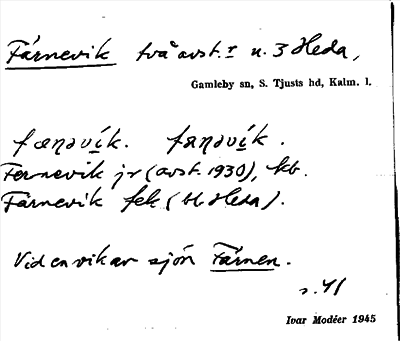 Färnevik två avst.r u. 3 Heda,
Gamleby sn, S. Tjusts hd, Kalm. l.
fæɳəvík. fæɳəvík.
Fernevik jr (avst. 1930), kb.
Färnevik fek (bl. Heda).
Vid en vik av sjön Färnen.
s. 41
Ivar Modéer 1945